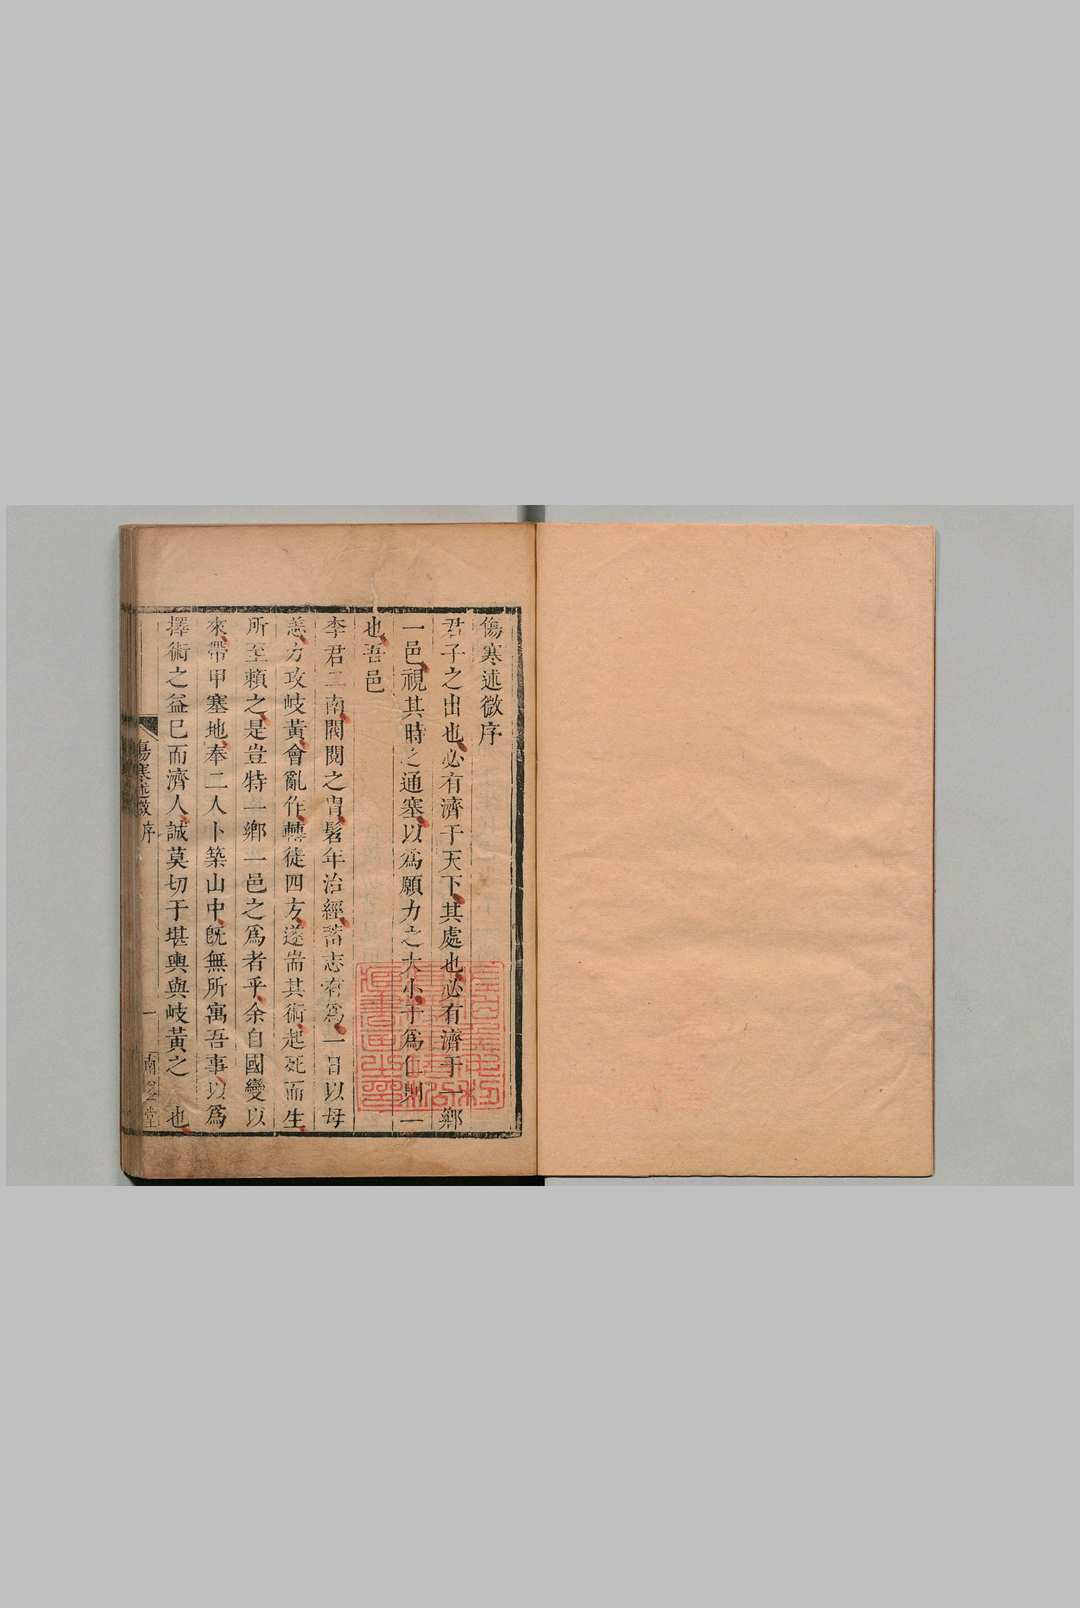 傷寒述微序
君子之出也必有濟于天下其處也必有濟于一鄉
一邑視其時之通塞以為願力之大小于為仁則一
也吾邑
李君二南閥閱之胄髫年治經誥志有為一旦以母
恙方攻岐黃會亂作轉徙四方遂耑其術起死而生
所至賴之是豈特一鄉一邑之為者乎余自國變以
來帶甲塞地奉二人卜築山中旣無所寓吾事以為
擇術之益已而濟人誠莫切于堪輿與岐黃之 也
傷寒述微 序 一 南 堂